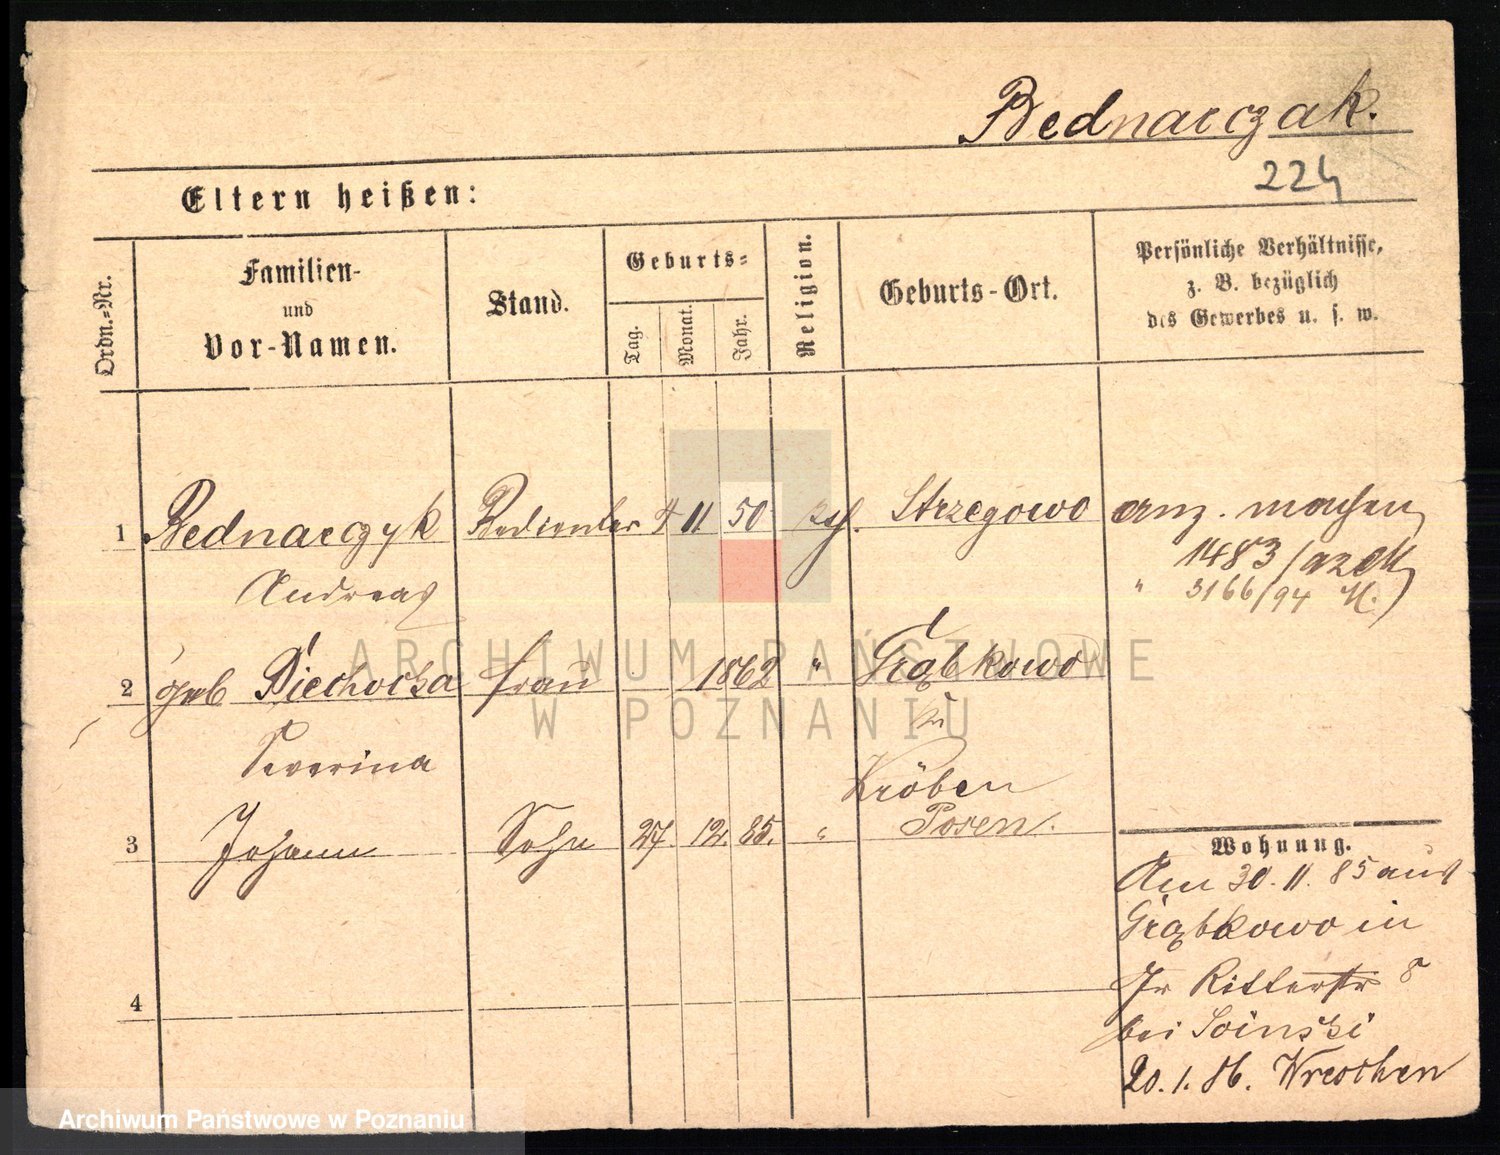 Bednarczak.
224
Eltern heißen:
Ordn.-Nr.
Familien-
und
Vor-Namen.
Stand.
Geburts-
Tag.
Monat.
Jahr.
Religion.
Geburts-Ort.
Persönliche Verhältnisse,
z. B. bezüglich
des Gewerbes u. s. w.
1 Bednarczyk 11 50 Strzegowo
Andreas
1483/92
" 3166/94 M.
2 geb Piechocka Frau 1862 " Grąbkowo
Severina
Kröben
Posen.
3 Johann Sohn 27. 12. 85. "
4
Wohnung.
Am 30. 11. 85 aus
Grąbkowo in
Ritterstr 8
bei Soinski
20. 1. 86. Wreschen
ARCHIWUM PAŃSTWOWE
W POZNANIU
Archiwum Państwowe w Poznaniu